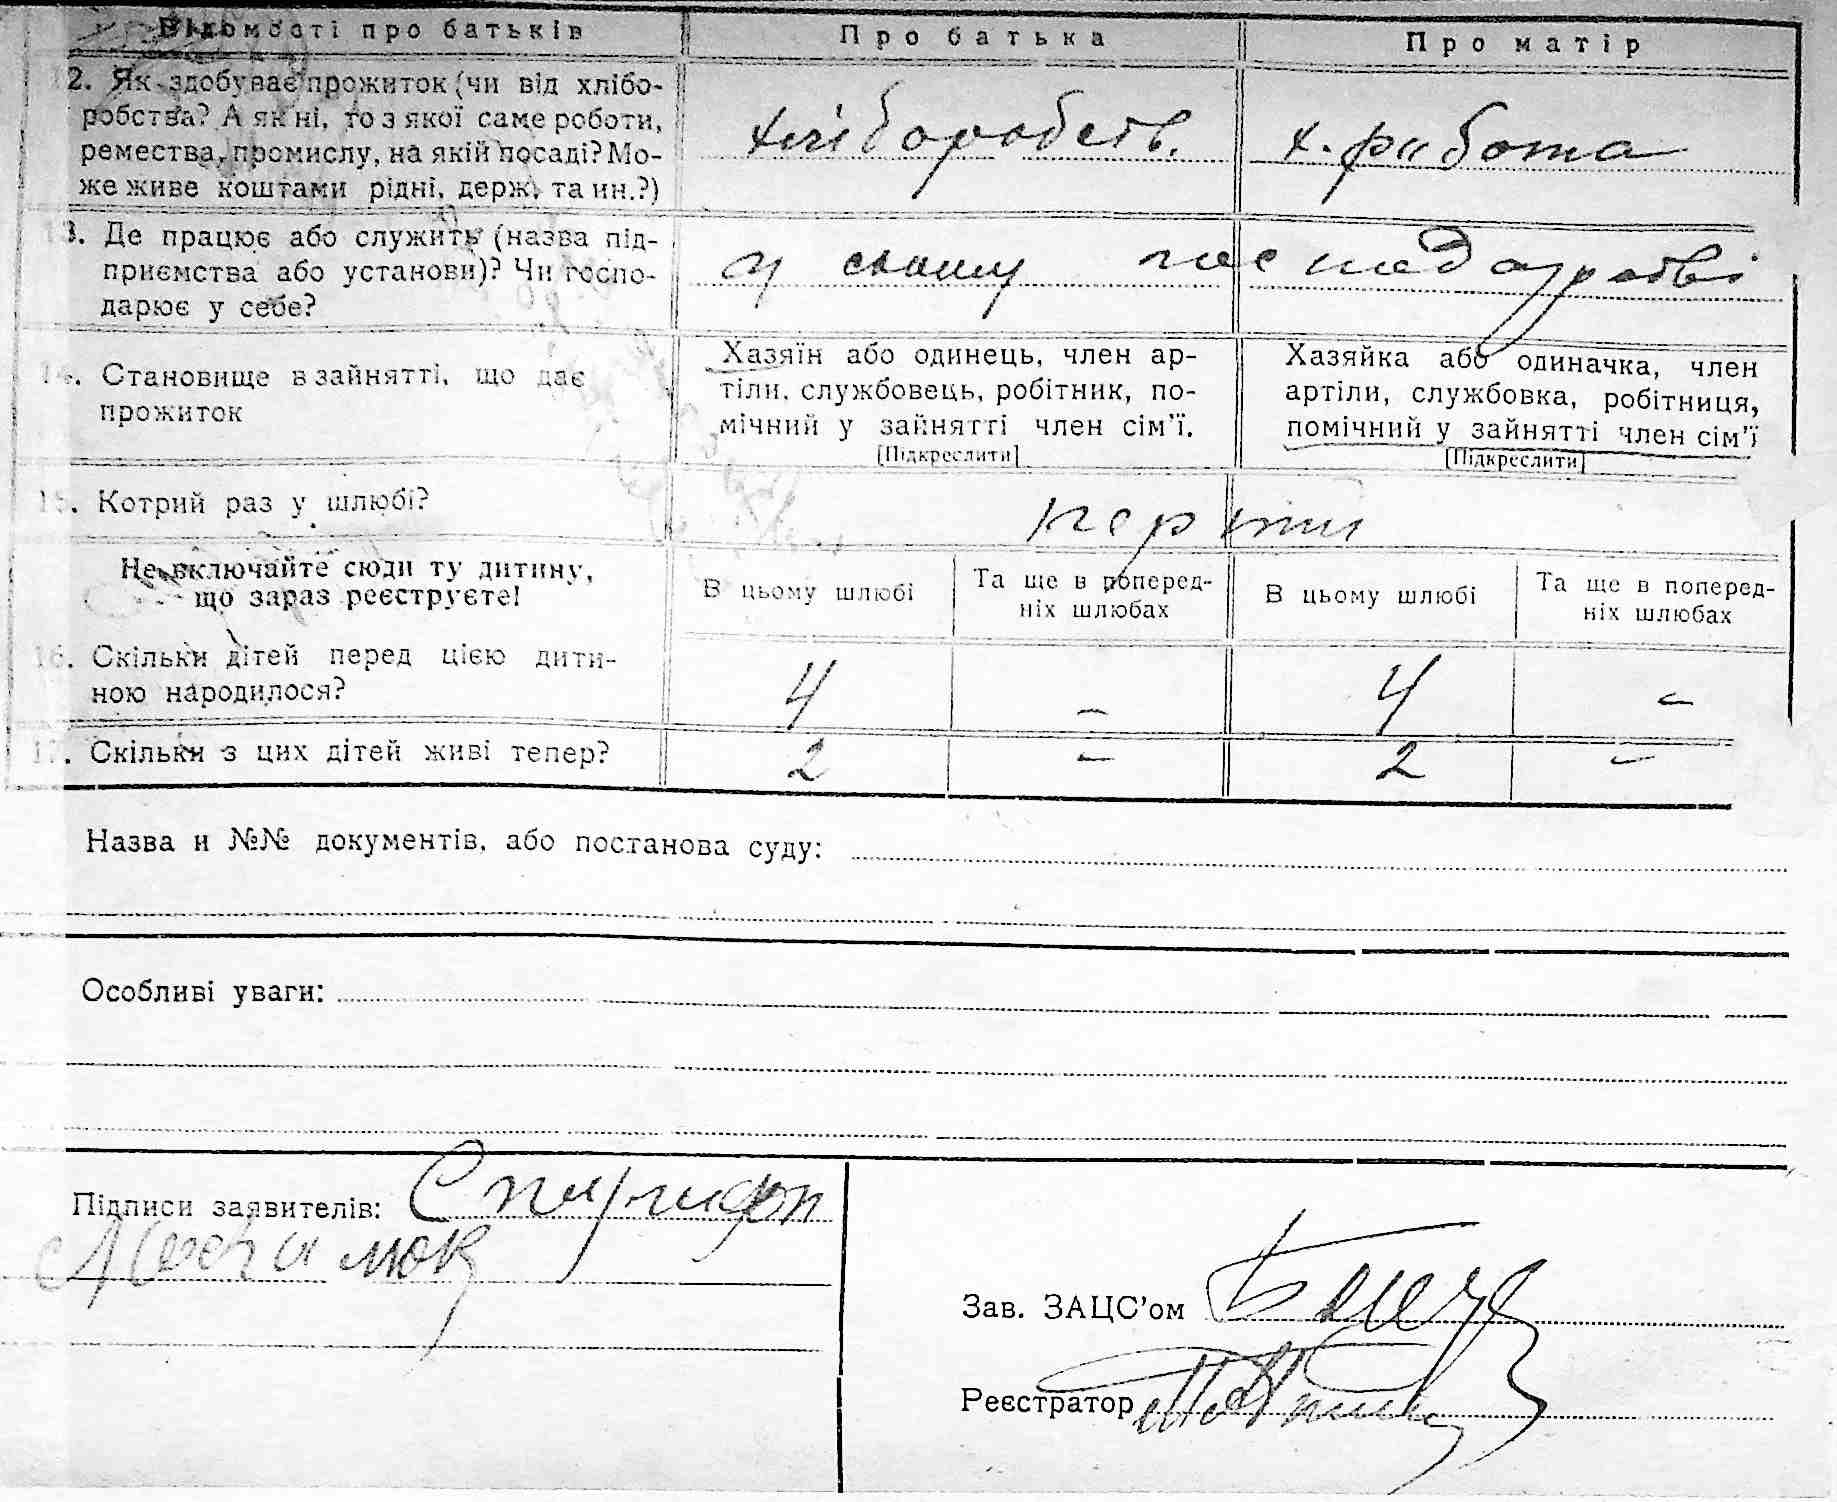 Відомості про батьків
Про батька
Про матір
2. Як здобуває прожиток (чи від хлібо-
робства? А як ні, то з якої саме роботи,
ремества, промислу, на якій посаді? Мо-
же живе коштами рідні, держ. та ин.?)
хліборобств.
х. работа
3. Де працює або служить (назва під-
приємства або установи)? Чи госпо-
дарює у себе?
у свому господарстві
14. Становище в зайнятті, що дає
прожиток
Хазяїн або одинець, член ар-
тіли, службовець, робітник, по-
мічний у зайнятті член сім'ї.
[Підкреслити]
Хазяйка або одиначка, член
артіли, службовка, робітниця,
помічний у зайнятті член сім'ї
[Підкреслити]
15. Котрий раз у шлюбі?
перший
Не включайте сюди ту дитину,
що зараз реєструєте!
В цьому шлюбі
Та ще в поперед-
ніх шлюбах
В цьому шлюбі
Та ще в поперед-
ніх шлюбах
16. Скільки дітей перед цією дити-
ною народилося?
4 – 4 –
17. Скільки з цих дітей живі тепер?
2 – 2 –
Назва и №№ документів, або постанова суду:
Особливі уваги:
Підписи заявителів: Спиридон
Зав. ЗАЦС'ом
Реєстратор